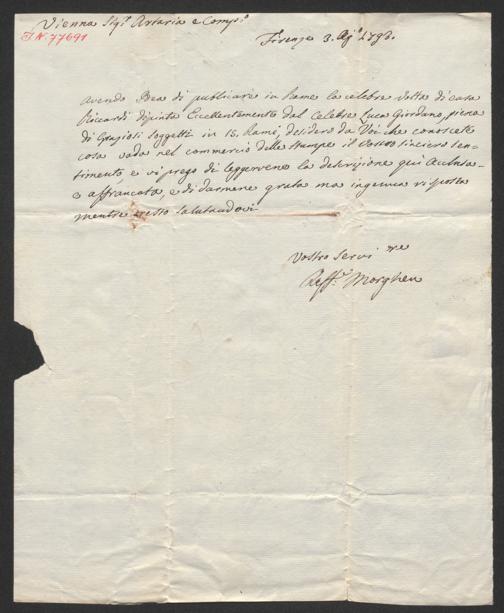 Vienna Sigri Artaria e Compi
I.N. 77691
Firenze 3. Ago
avendo Idea di publicare in Rame la celebre volta di casa
Riccardi dipinta Eccellentemente dal celebre Luca Giordano, piena
di Graziosi soggetti in 15. Rami, desidero da Voi che conoscete
cosa vada nel commercio delle stampe il vostro sincero sen-
timento e vi prego di leggervene la descrizione qui acclusa-
affrancata, e di darmene grata ma ingenua risposta
mentre resto salutandovi-
Vostro Servire
Raffo Morghen